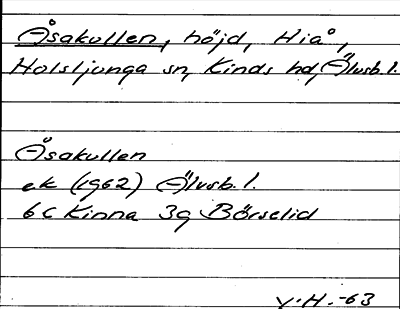 Åsakullen, höjd, Hiå,
Holsljunga sn, Kinds hd, Älvsb. l.
Åsakullen
ek (1962) Älvsb. l.
6 C Kinna 3g Börselid
V.H. -63